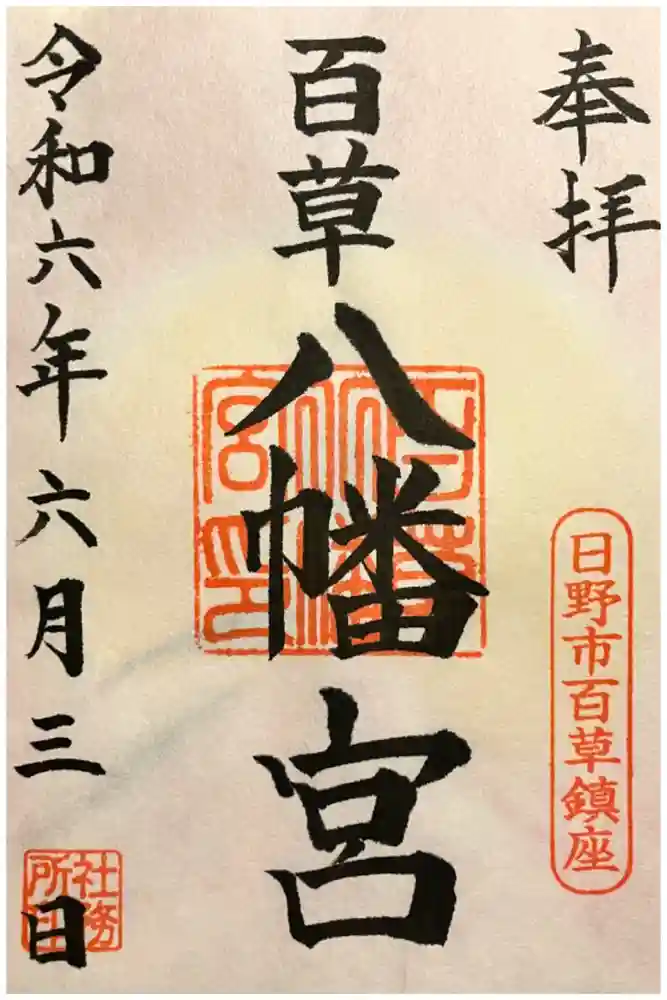 奉拝
日野市百草鎮座
百草八幡宮
令和六年六月三日
社務
所